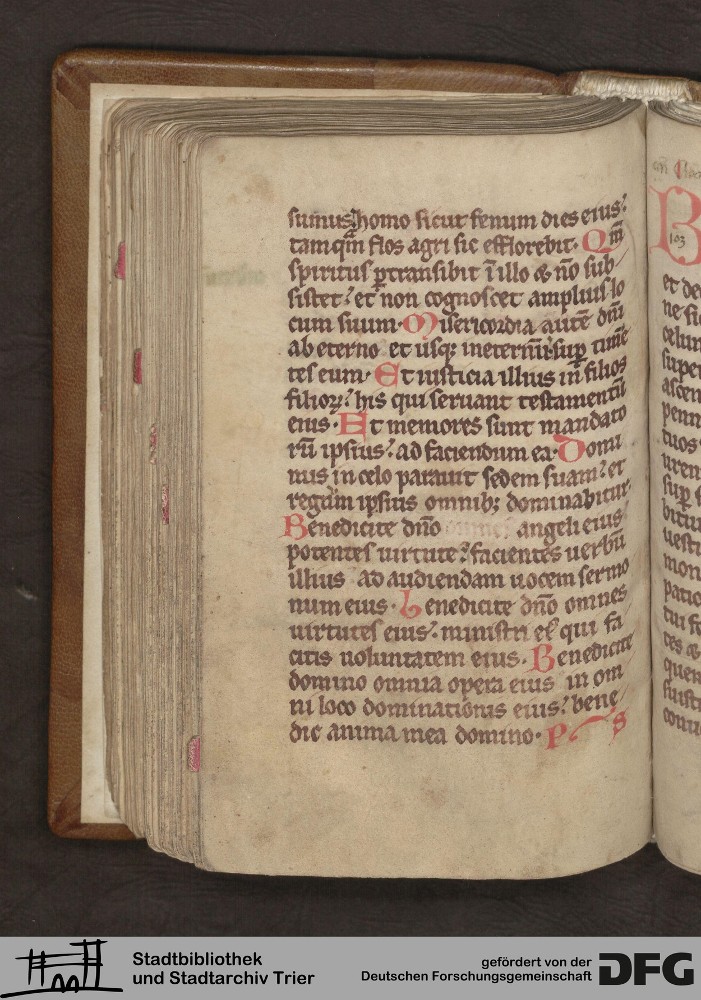 sumus homo sicut fenum dies eius:
tamqm̄ flos agri sic efflorebit. Qm̄
spiritus ꝑtransibit ī illo & nō sub
sistet: et non cognoscet amplius lo
cum suum. Misericordia autē dn̄i
ab eterno et usqꝫ in eternū sup̄ timē
tes eum. Et iusticia illius in filios
filioꝝ: his qui seruant testamentū
eius. Et memores sunt mandato
rū ipsius: ad faciendum ea. Domi
nus in celo parauit sedem suam: et
regnum ipsius omnibꝫ dominabitur.
Benedicite dn̄o angeli eius
potentes uirtute: facientes uerbū
illius ad audiendam uocem sermo
num eius. Benedicite dn̄o omnes
uirtutes eius: ministri ei' qui fa
citis uoluntatem eius. Benedicite
domino omnia opera eius in om
ni loco dominationis eius: bene
dic anima mea domino. P S
B
103
et de
ne si
celum
super
ascen
penn
tuos
uren
sup̄ s
bitur
uesti
mon
patio
tui fo
tes &
quem
fuisti
conue
Stadtbibliothek
und Stadtarchiv Trier
gefördert von der
Deutschen Forschungsgemeinschaft
DFG